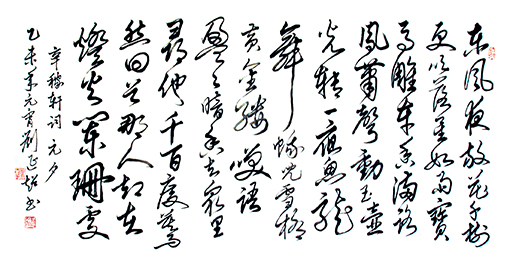 东风夜放花千树
更吹落星如雨寶
马雕车香满路
凤箫声动玉壶
光转一夜鱼龙
舞蛾儿雪柳
黄金缕笑语
盈盈暗香去众里
寻他千百度蓦
然回首那人却在
燈火闌珊处
辛稼轩词元夕
乙未年元宵劉延超书